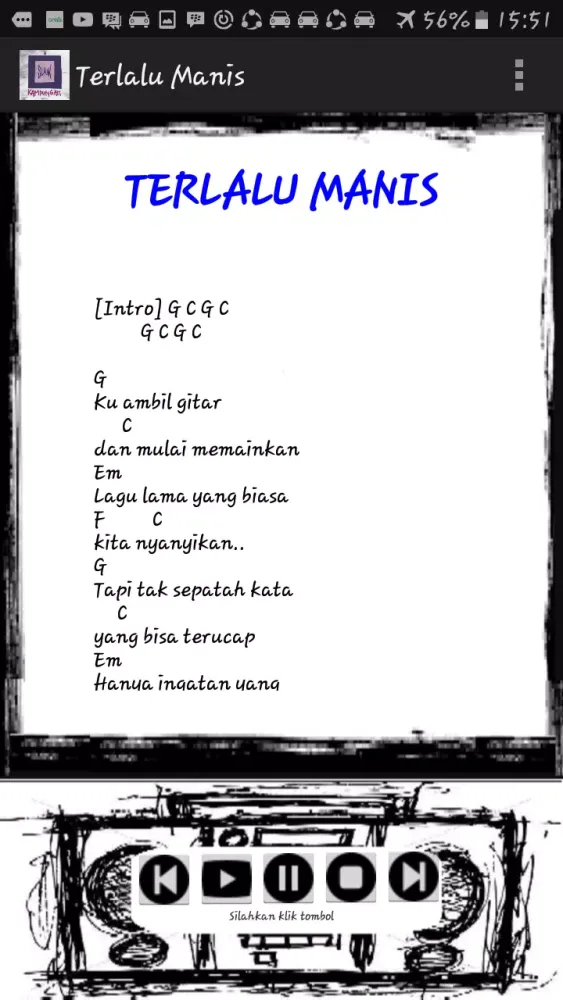 56% 15:51
SLANK
KAMPUNGAN
Terlalu Manis
TERLALU MANIS
[Intro] G C G C
G C G C
G
Ku ambil gitar
C
dan mulai memainkan
Em
Lagu lama yang biasa
F C
kita nyanyikan..
G
Tapi tak sepatah kata
C
yang bisa terucap
Em
Hanya ingatan yang
Silahkan klik tombol